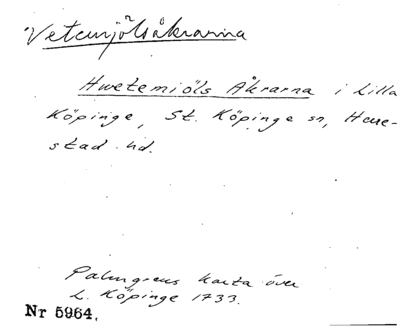 Vetemjölsåkrarna
Hwetemiöls Åkrarna i Lilla
Köpinge, St. Köpinge sn, Here-
stad hd.
Palmgrens karta över
L. Köpinge 1733.
Nr 5964.